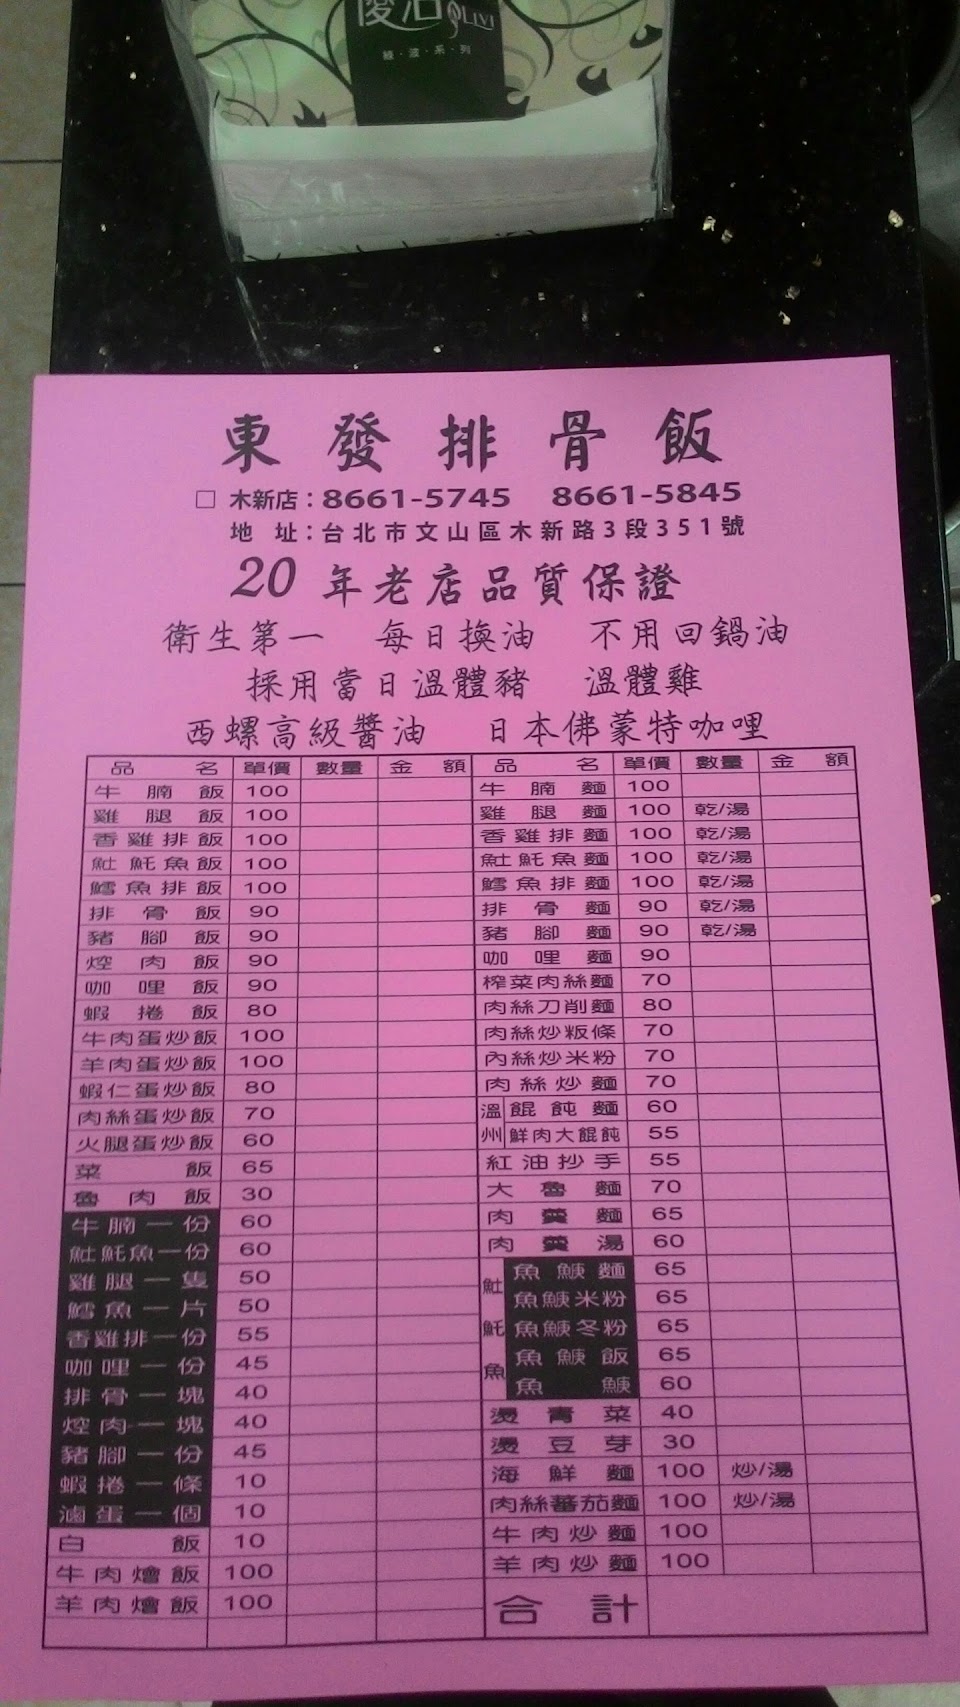 優活 OLIVI
綠·波·系·列
東發排骨飯
□ 木新店：8661-5745 8661-5845
地 址：台北市文山區木新路3段351號
20 年老店品質保證
衛生第一 每日換油 不用回鍋油
採用當日溫體豬 溫體雞
西螺高級醬油 日本佛蒙特咖哩
品名 單價 數量 金額 品名 單價 數量 金額
牛腩飯 100 牛腩麵 100
雞腿飯 100 雞腿麵 100 乾/湯
香雞排飯 100 香雞排麵 100 乾/湯
魠魠魚飯 100 魠魠魚麵 100 乾/湯
鱈魚排飯 100 鱈魚排麵 100 乾/湯
排骨飯 90 排骨麵 90 乾/湯
豬腳飯 90 豬腳麵 90 乾/湯
焢肉飯 90 咖哩麵 90
咖哩飯 90 榨菜肉絲麵 70
蝦捲飯 80 肉絲刀削麵 80
牛肉蛋炒飯 100 肉絲炒粄條 70
羊肉蛋炒飯 100 肉絲炒米粉 70
蝦仁蛋炒飯 80 肉絲炒麵 70
肉絲蛋炒飯 70 溫州 餛飩麵 60
火腿蛋炒飯 60 鮮肉大餛飩 55
菜飯 65 紅油抄手 55
魯肉飯 30 大魯麵 70
牛腩一份 60 肉羹麵 65
魠魠魚一份 60 肉羹湯 60
雞腿一隻 50 魠魠魚 魚䱎麵 65
鱈魚一片 50 魚䱎米粉 65
香雞排一份 55 魚䱎冬粉 65
咖哩一份 45 魚䱎飯 65
排骨一塊 40 魚䱎 60
焢肉一塊 40 燙青菜 40
豬腳一份 45 燙豆芽 30
蝦捲一條 10 海鮮麵 100 炒/湯
滷蛋一個 10 肉絲蕃茄麵 100 炒/湯
白飯 10 牛肉炒麵 100
牛肉燴飯 100 羊肉炒麵 100
羊肉燴飯 100 合計